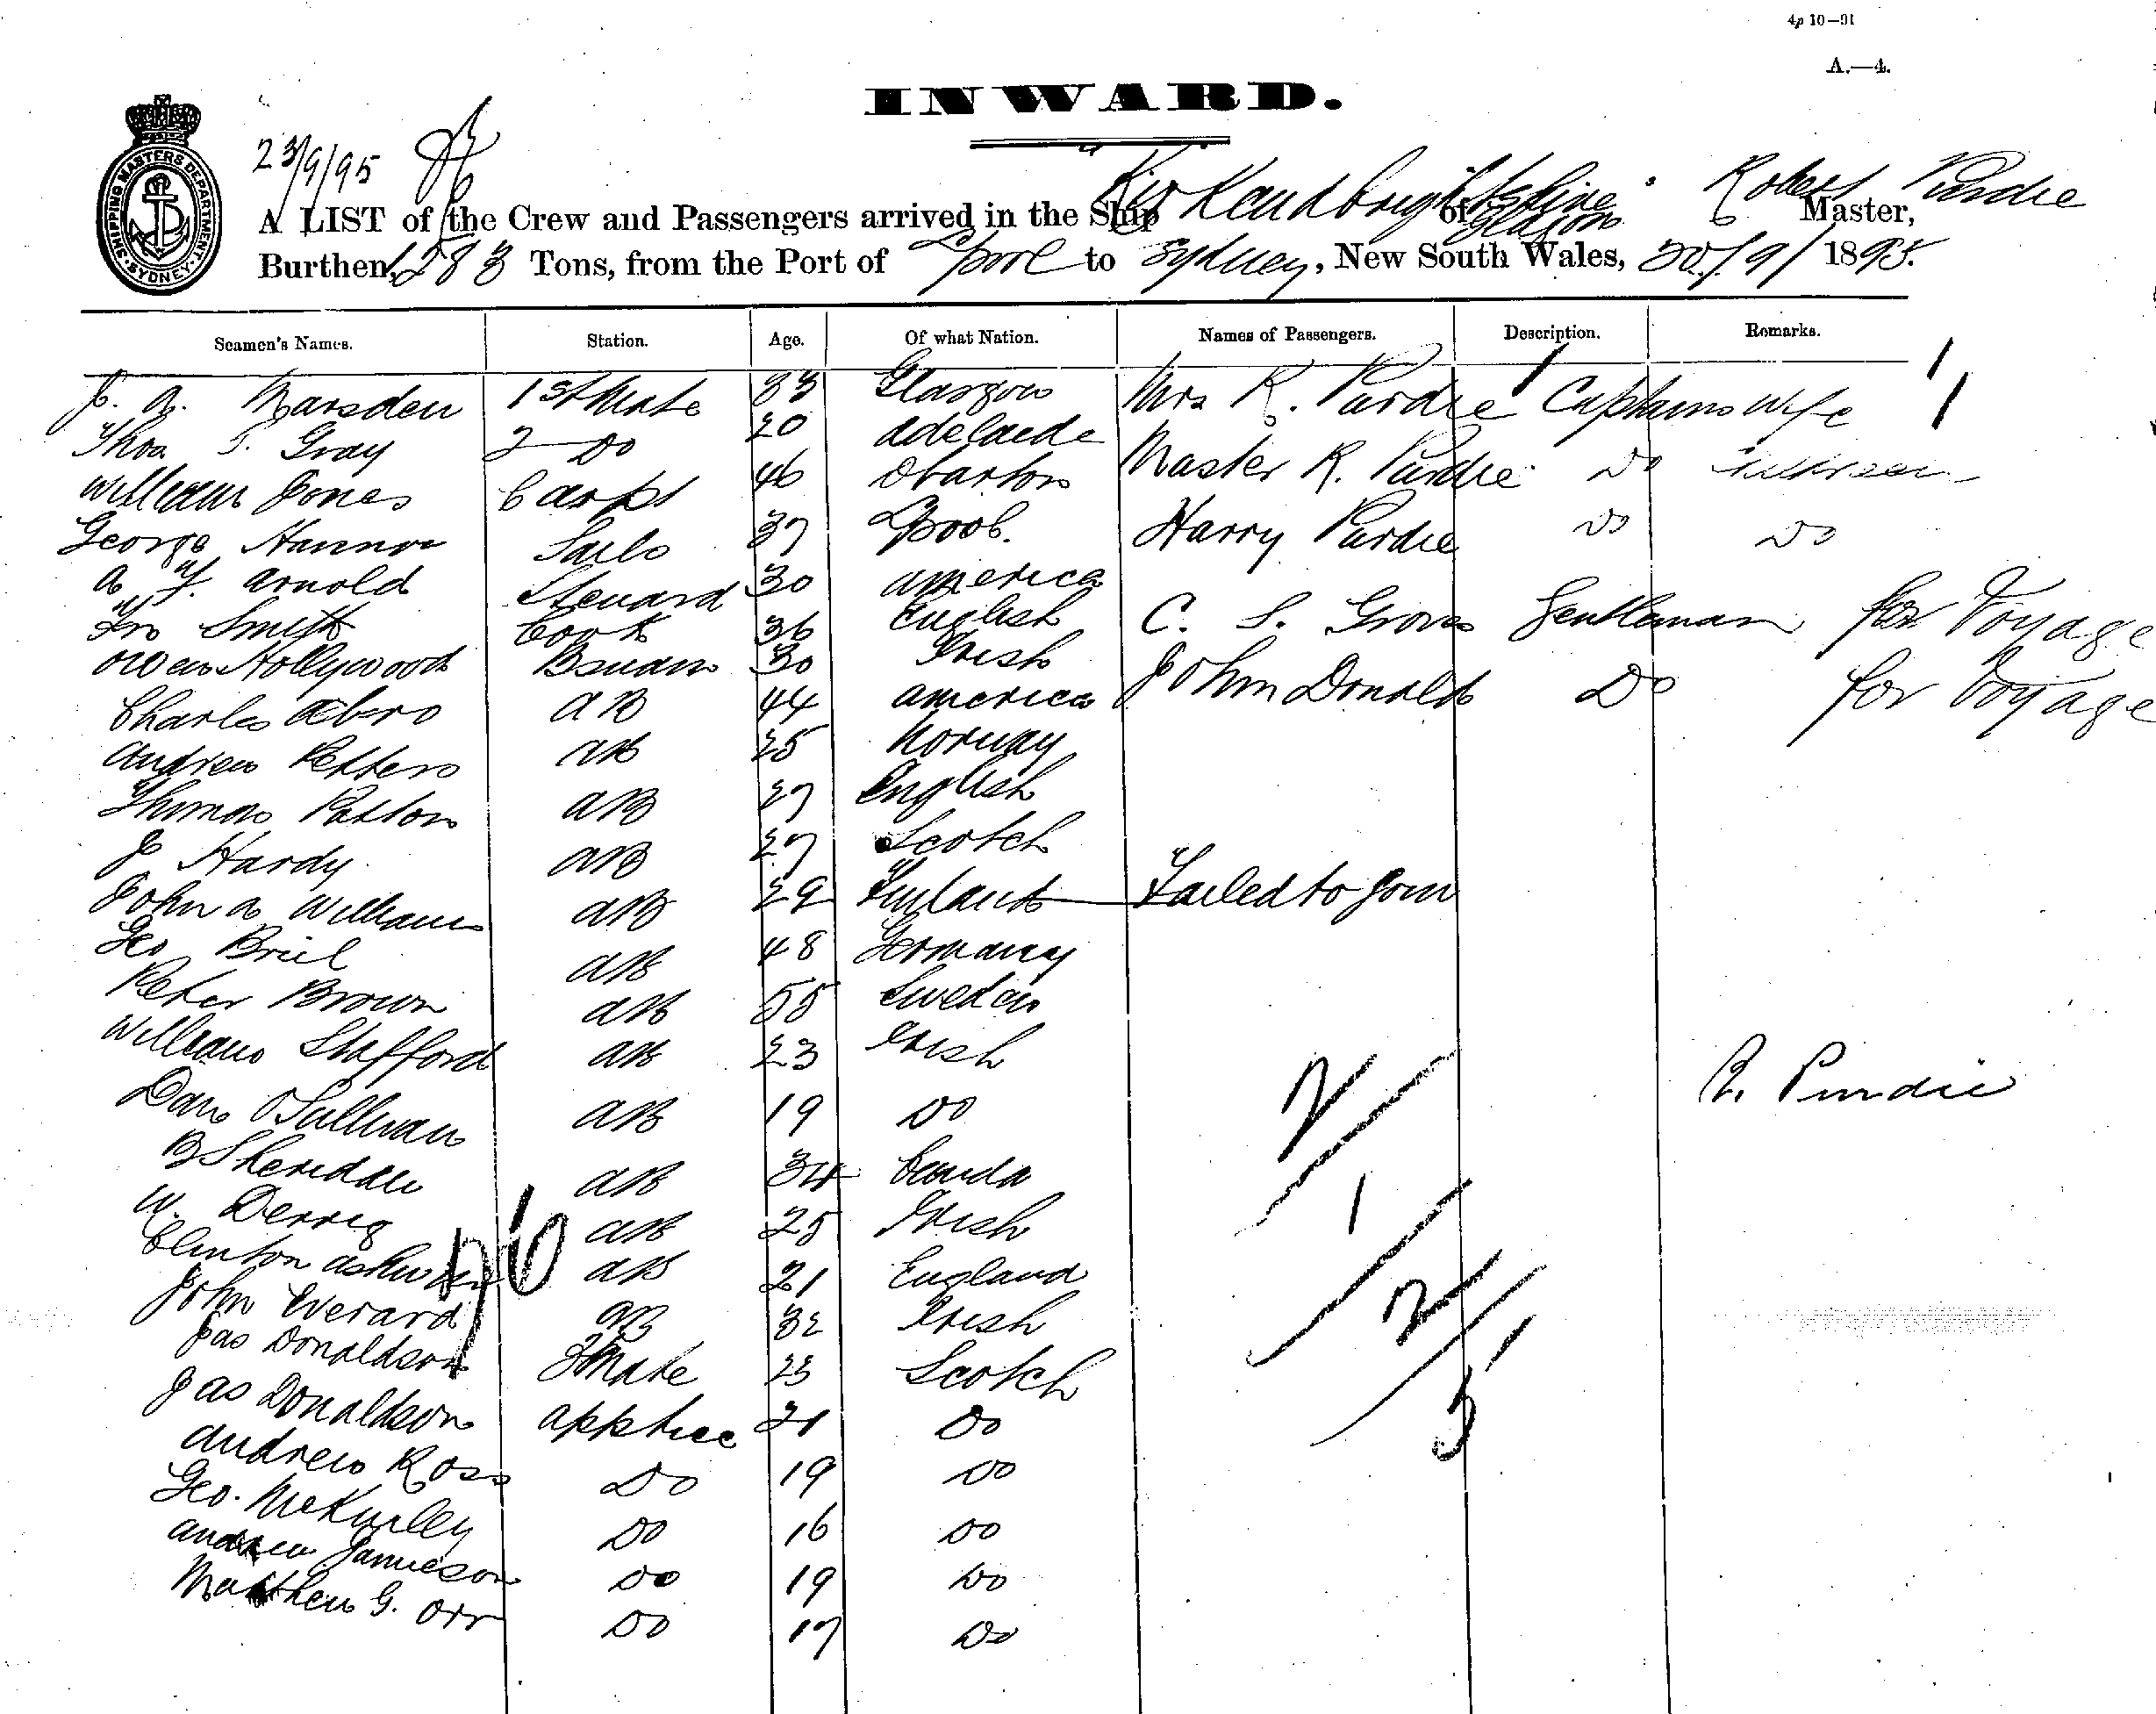 4p 10—91
A.—4.
INWARD.
SHIPPING MASTERS DEPARTMENT SYDNEY
23/9/95
A LIST of the Crew and Passengers arrived in the Ship "Kirkcudbrightshire" of Glasgow Robert Purdie Master,
Burthen 1283 Tons, from the Port of Lpool to Sydney, New South Wales, 20/9/1895.
Seamen's Names. Station. Age. Of what Nation. Names of Passengers. Description. Remarks.
J. A. Marsden 1st Mate 33 Glasgow Mrs R. Purdie Captains Wife
Thos S. Gray 2 Do 20 Adelaide
William Jones Carpt 46 Master R. Purdie Do
George Sails 37 Lpool. Harry Purdie Do Do
A Y. Arnold Steward 30 America
Jno Smith Cook 36 English C. S. Groves Gentleman for Voyage
Owen Hollywood Bsuam 30 Irish John Donald Do for Voyage
Charles AB 44 America
Andrew Petters AB 25 Norway
Thomas Patton AB 27 English
J Hardy AB 27 Scotch
John A Williams AB 29 Finland Failed to Join
Geo. Briel AB 48 Germany
Peter Brown AB 55 Sweden
William Stafford AB 23 Irish
R. Purdie
Dan O'Sullivan AB 19 Do
B AB 34 Canda
W. Derrig AB 25 Irish
Clinton AB 21 England
John Everard AB 32 Irish
Jas Donaldson 3 Mate 23 Scotch
Jas Donaldson apptice 21 Do
Andrew Ross Do 19 Do
Geo. McKinlley Do 16 Do
Andrew Jamieson Do 19 Do
Matthew G. Orr Do 17 Do
2
1
2
5